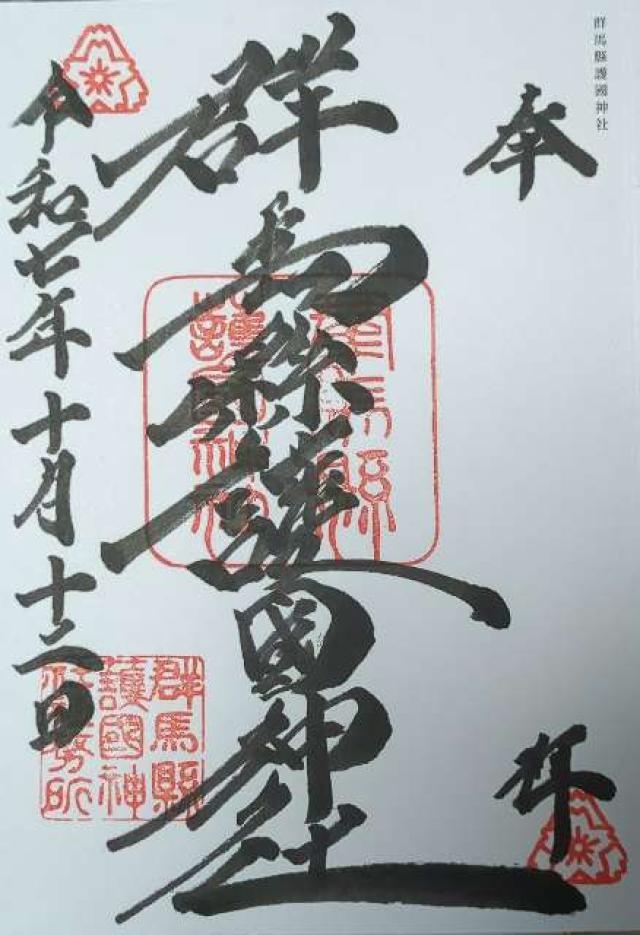 群馬縣護國神社
奉拝
群馬縣護國神社
群馬縣護國神社
令和七年十月十二日
群馬縣
護國神
社務所